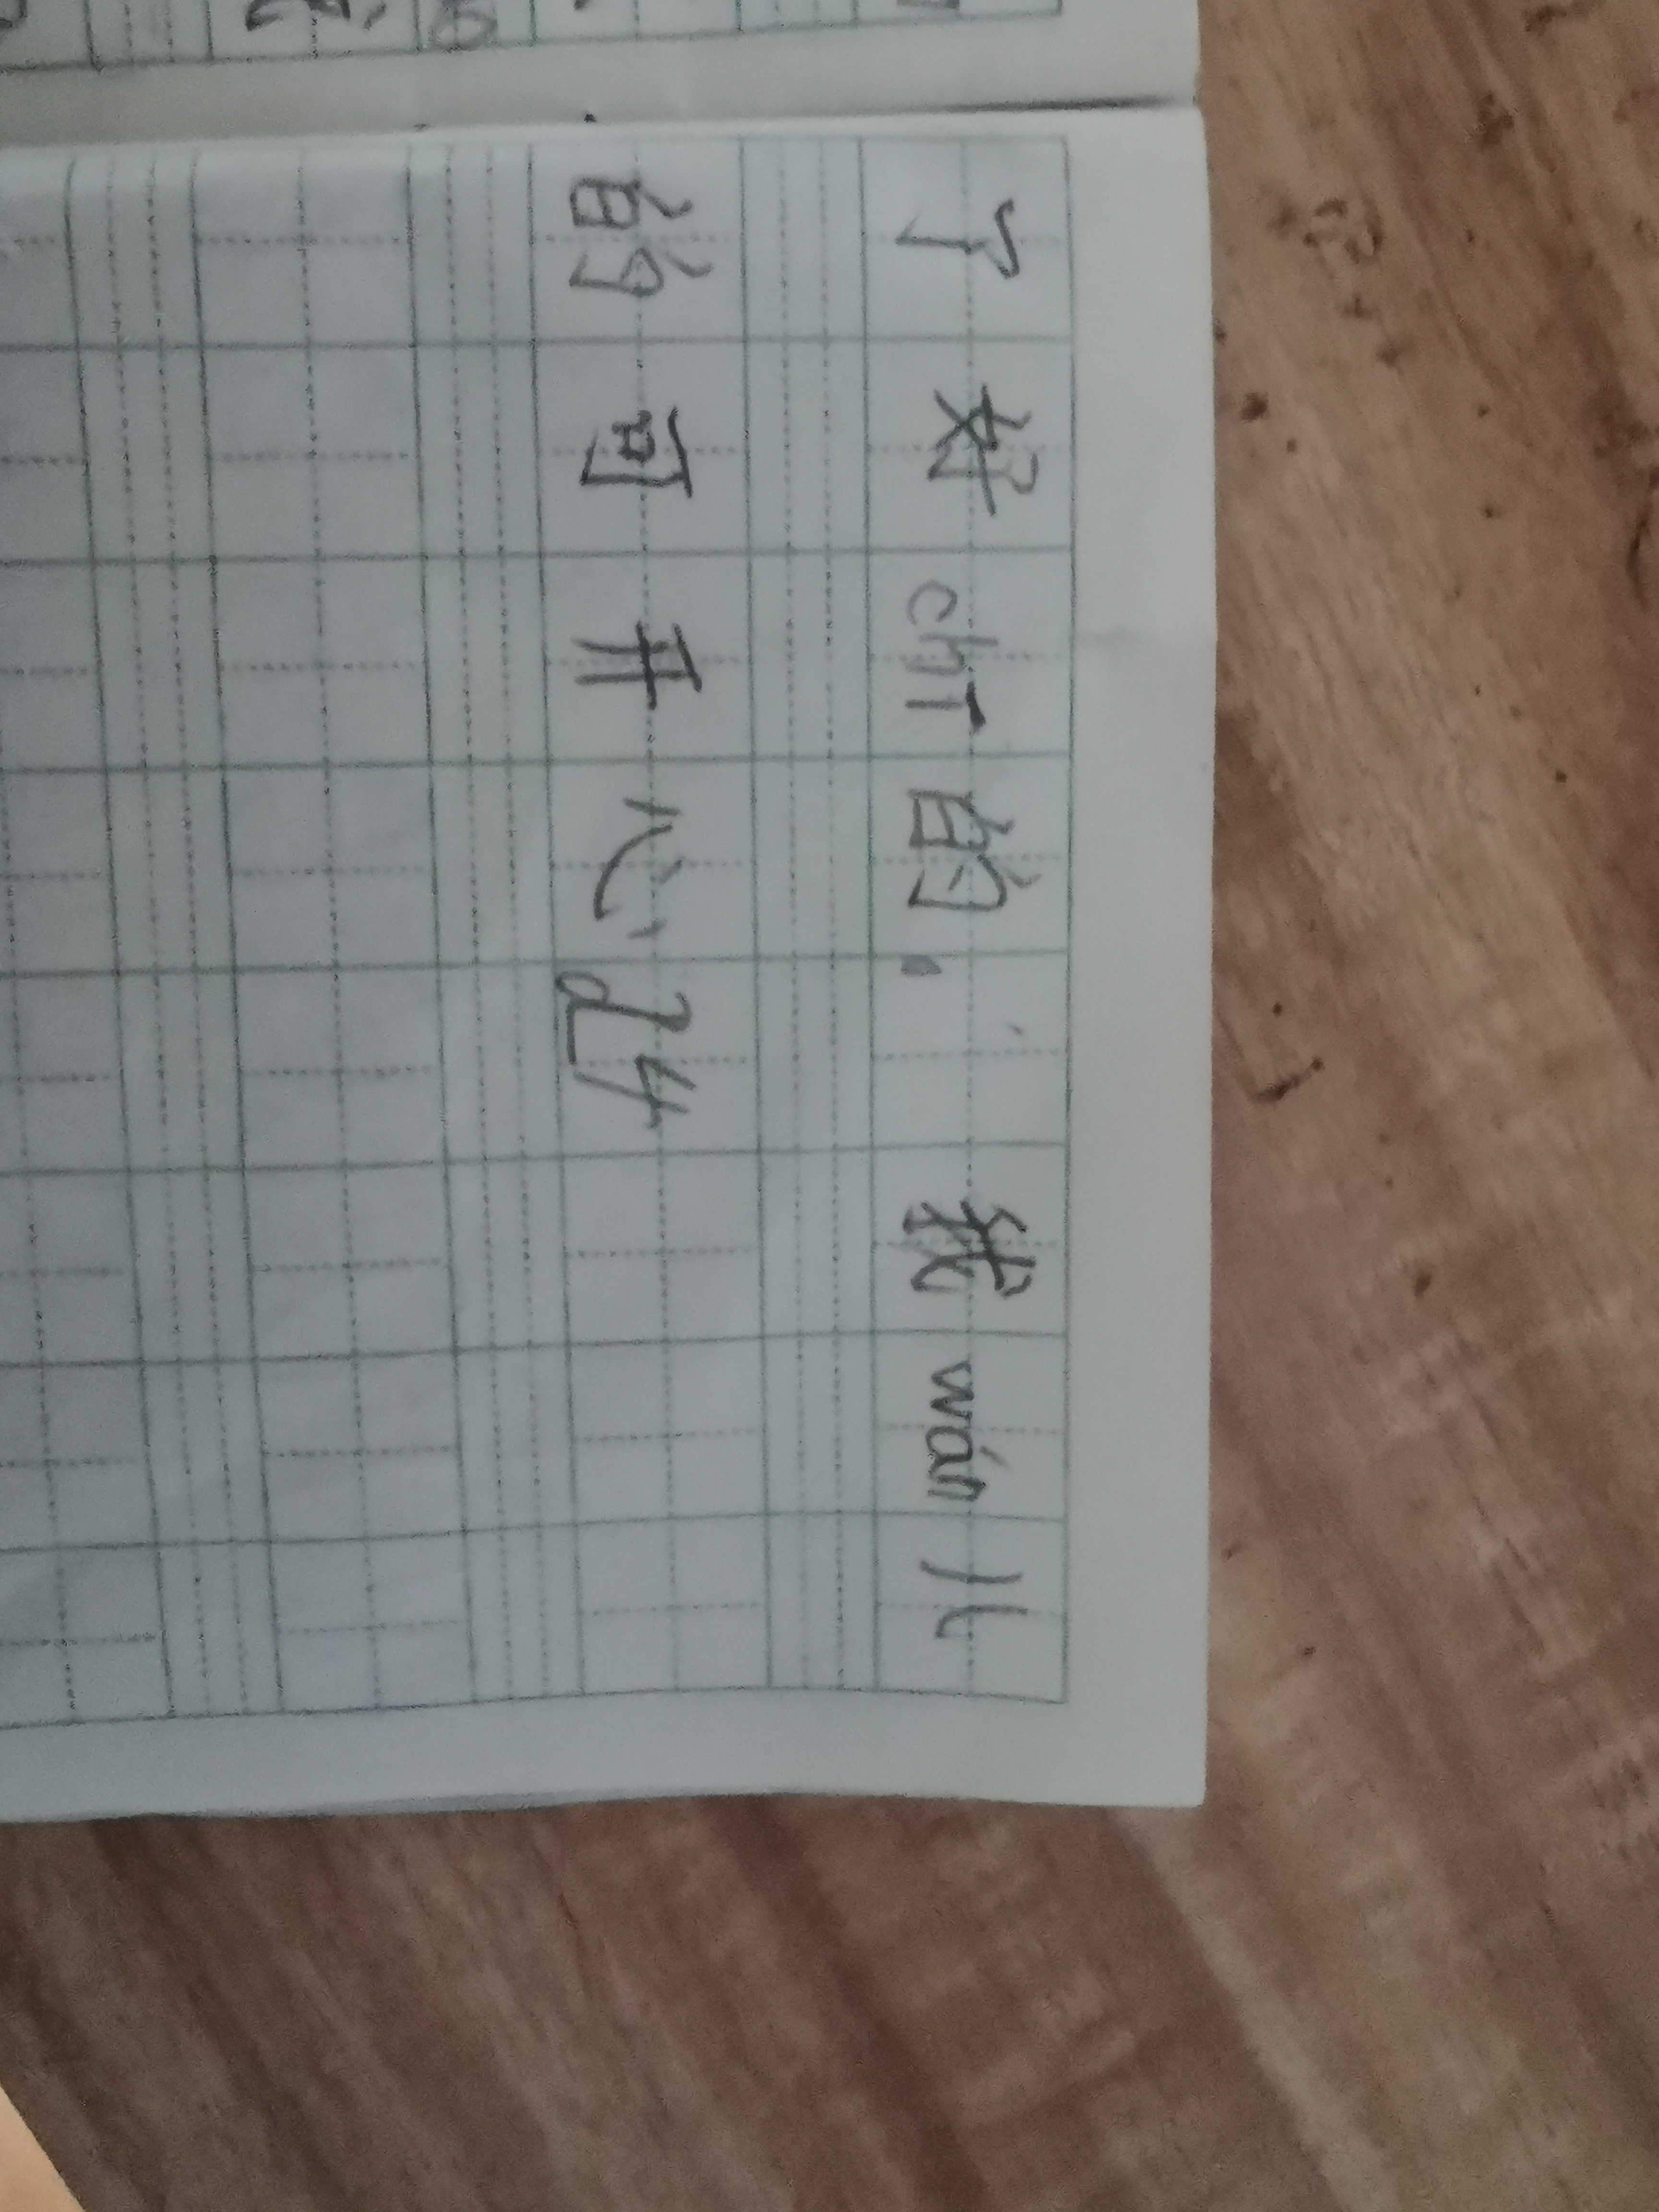 了好chī的. 我wán儿
的可开心